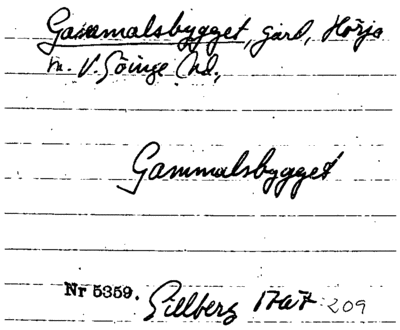 Gammalsbygget, gård, Hörja
m. V. Göinge hd.
Gammalsbygget
Nr 5359. Gillberg 1767 209